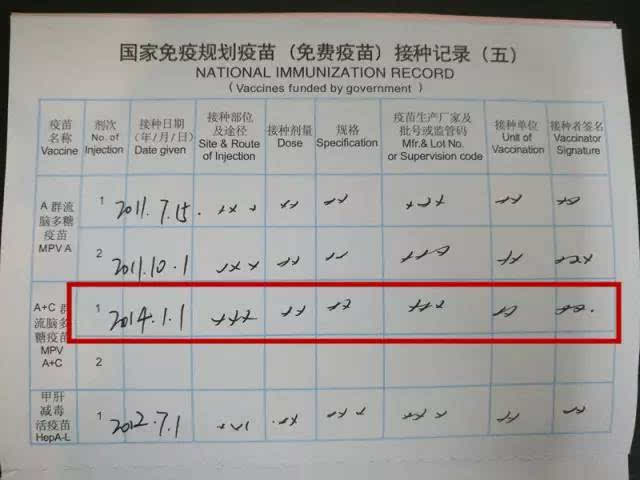 国家免疫规划疫苗（免费疫苗）接种记录（五）
NATIONAL IMMUNIZATION RECORD
（Vaccines funded by government）
疫苗
名称
Vaccine
剂次
No. of
Injection
接种日期
(年/月/日)
Date given
接种部位
及途径
Site & Route
of Injection
接种剂量
Dose
规格
Specification
疫苗生产厂家及
批号或监管码
Mfr.& Lot No.
or Supervision code
接种单位
Unit of
Vaccination
接种者签名
Vaccinator
Signature
A 群流
脑多糖
疫苗
MPV A
1
2011.7.15.
2
2011.10.1
A+C 群
流脑多
糖疫苗
MPV
A+C
1
2014.1.1
2
甲肝
减毒
活疫苗
HepA-L
1
2012.7.1